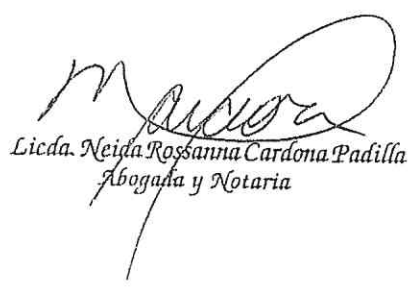 Licda. Neida Rossanna Cardona Padilla
Abogada y Notaria